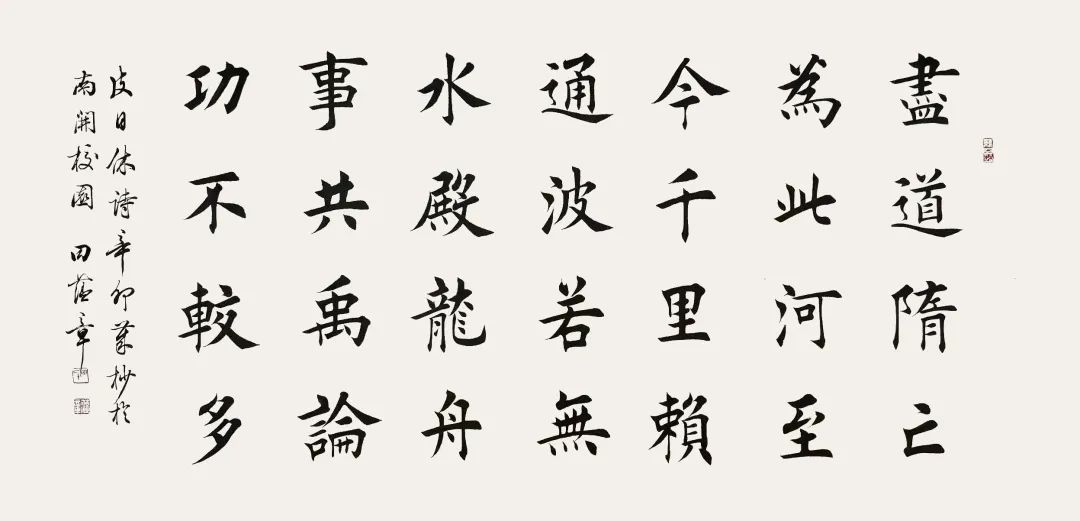 盡道隋亡
為此河至
今千里賴
通波若無
水殿龍舟
事共禹論
功不較多
皮日休詩辛卯葉抄於
南開校園 田蘊章